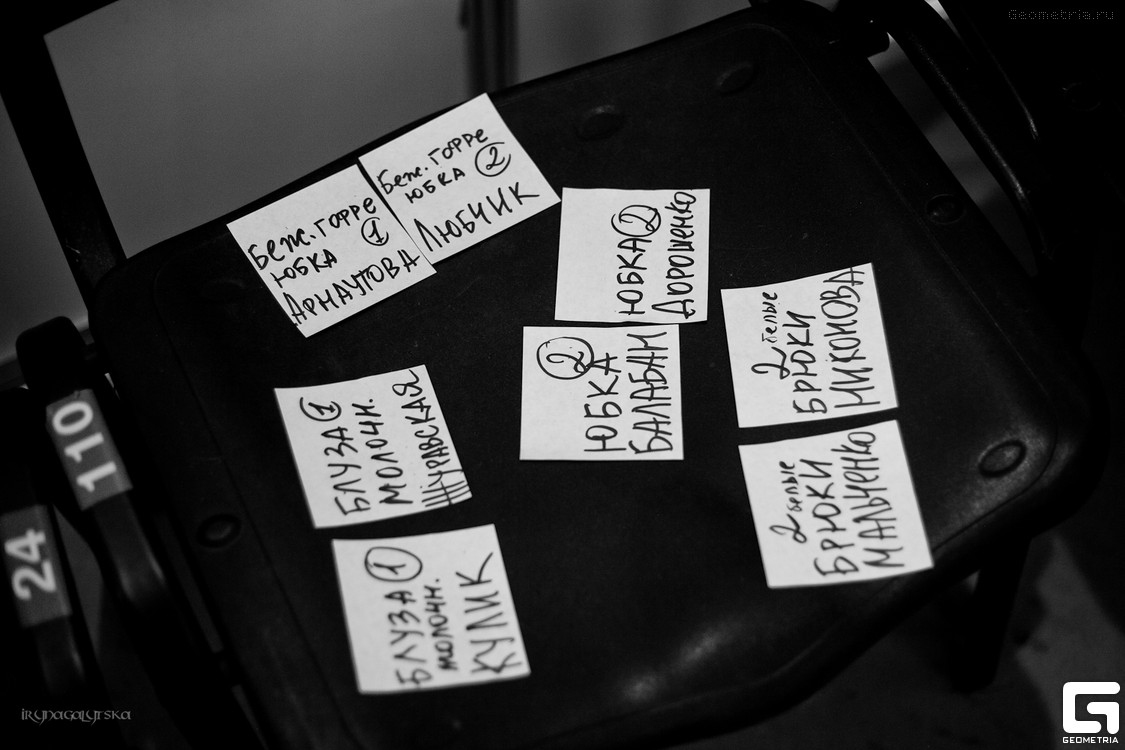 Geometria.ru
Беж. ГОФРЕ
ЮБКА ①
АРНАУТОВА
Беж. ГОФРЕ
ЮБКА ②
ЛЮБЧИК
ЮБКА ②
ДОРОШЕНКО
② ЮБКА
БАЛАБАН
2 белые
БРЮКИ
НИКОНОВА
2 белые
БРЮКИ
МАЛЬЧЕНКО
БЛУЗА ①
МОЛОЧН.
ЖУРАВСКАЯ
БЛУЗА ①
МОЛОЧН.
КУЛИК
110
24
irynagalytska
GEOMETRIA